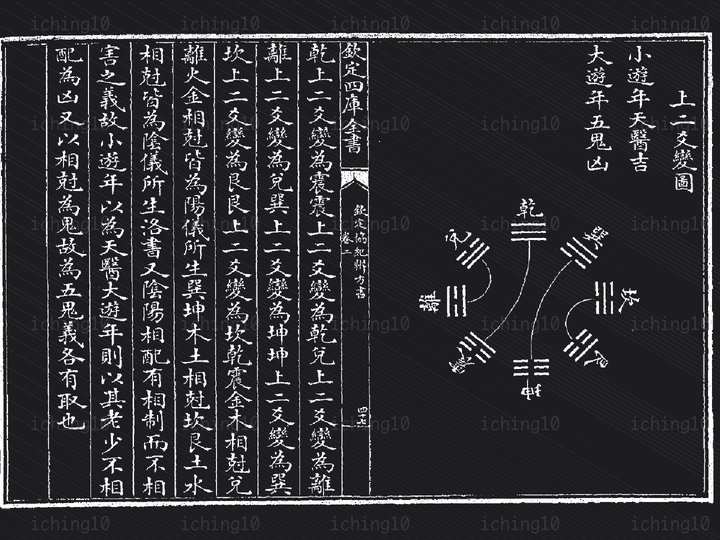 上二爻變圖
小遊年天醫吉
大遊年五鬼凶
乾
巽
坎
艮
坤
震
離
兌
欽定四庫全書
欽定協紀辨方書
卷二
四十九
乾上二爻變為震震上二爻變為乾兌上二爻變為離
離上二爻變為兌巽上二爻變為坤坤上二爻變為巽
坎上二爻變為艮艮上二爻變為坎乾震金木相尅兌
離火金相尅皆為陽儀所生巽坤木土相尅坎艮土水
相尅皆為陰儀所生洛書又陰陽相配有相制而不相
害之義故小遊年以為天醫大遊年則以其老少不相
配為凶又以相尅為鬼故為五鬼義各有取也
iching10